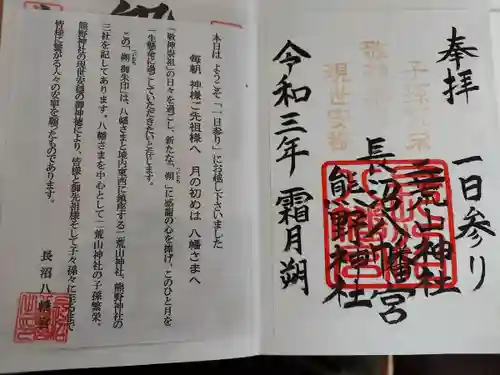 奉拝
一日参り
二荒山神社
長沼八幡宮
熊野神社
令和三年 霜月朔
敬神崇祖
子孫繁栄
現世安穏
本日は ようこそ「一日参り」にお越し下さいました
毎朝 神様ご先祖様へ 月の初めは 八幡さまへ
「敬神崇祖」の日々を過ごし、新たな「朔」に感謝の心を捧げ、このひと月を
一生懸命に過ごしていただきたいと存じます。
この「朔」御朱印は、八幡さまと境内東西に鎮座する二荒山神社、熊野神社の
三社を記してあります。八幡さまを中心として二荒山神社の子孫繁栄、
熊野神社の現世安穏の御神徳により、皆様と御先祖様そして子々孫々に至るまで
皆様に繋がる人々の安寧を願ったものであります。
長沼八幡宮